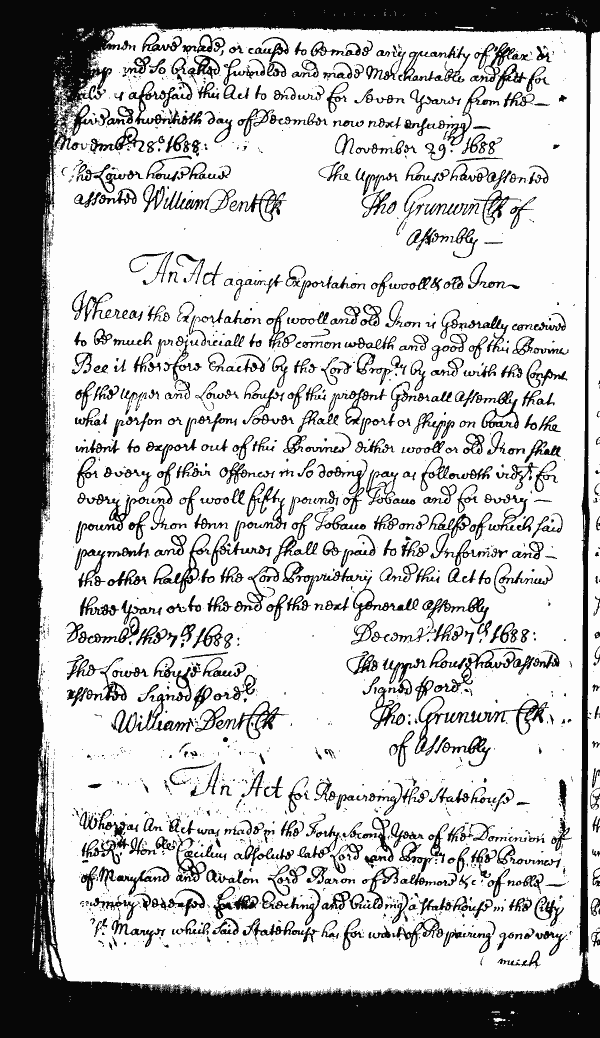 men have made, or caused to be made any quantity of fflax or
and So braked Swindled and made Merchantable and fitt for
Sale as aforesaid this Act to endure for Seven Yeares from the —
five and twentieth day of December now next ensueing —
Novemb.r 28.o 1688: November 29.th 1688
The Lower house have The Upper house have assented
assented William Bent Clk Tho Grunwin Clk of
Assembly —
An Act against Exportation of wooll & old Iron
Whereas the Exportation of wooll and old Iron is Generally conceived
to be much prejudiciall to the comon wealth and good of this Province
Bee it therefore Enacted by the Lord Prop.ry by and with the Consent
of the Upper and Lower houses of this present Generall Assembly that
what person or persons Soever shall Export or Shipp on board to the
intent to export out of this Province either wooll or old Iron shall
for every of their offences in So doeing pay as followeth vidz.t for
every pound of wooll fifty pounds of Tobacco and for every —
pound of Iron tenn pounds of Tobacco the one halfe of which said
payments and forfeitures shall be paid to the Informer and —
the other halfe to the Lord Proprietary And this Act to Continue
three Years or to the end of the next Generall Assembly
Decemb.r the 7.th 1688: Decemb.r the 7.th 1688:
The Lower house have The Upper house have assented
assented Signed p ord.r Signed p ord.r
William Bent Clk Tho: Grunwin Clk
of Assembly
An Act for Repaireing the Statehouse —
Whereas An Act was made in the Forty Second Year of the Dominion of
the R.tt Hon.ble Cecilius absolute late Lord and Prop.ry of the Provinces
of Maryland and Avalon Lord Baron of Baltemore &c.a of noble —
memory deceased for the Erecting and building a Statehouse in the Citty
S.t Maryes which said Statehouse has for want of Repairing gone very
much